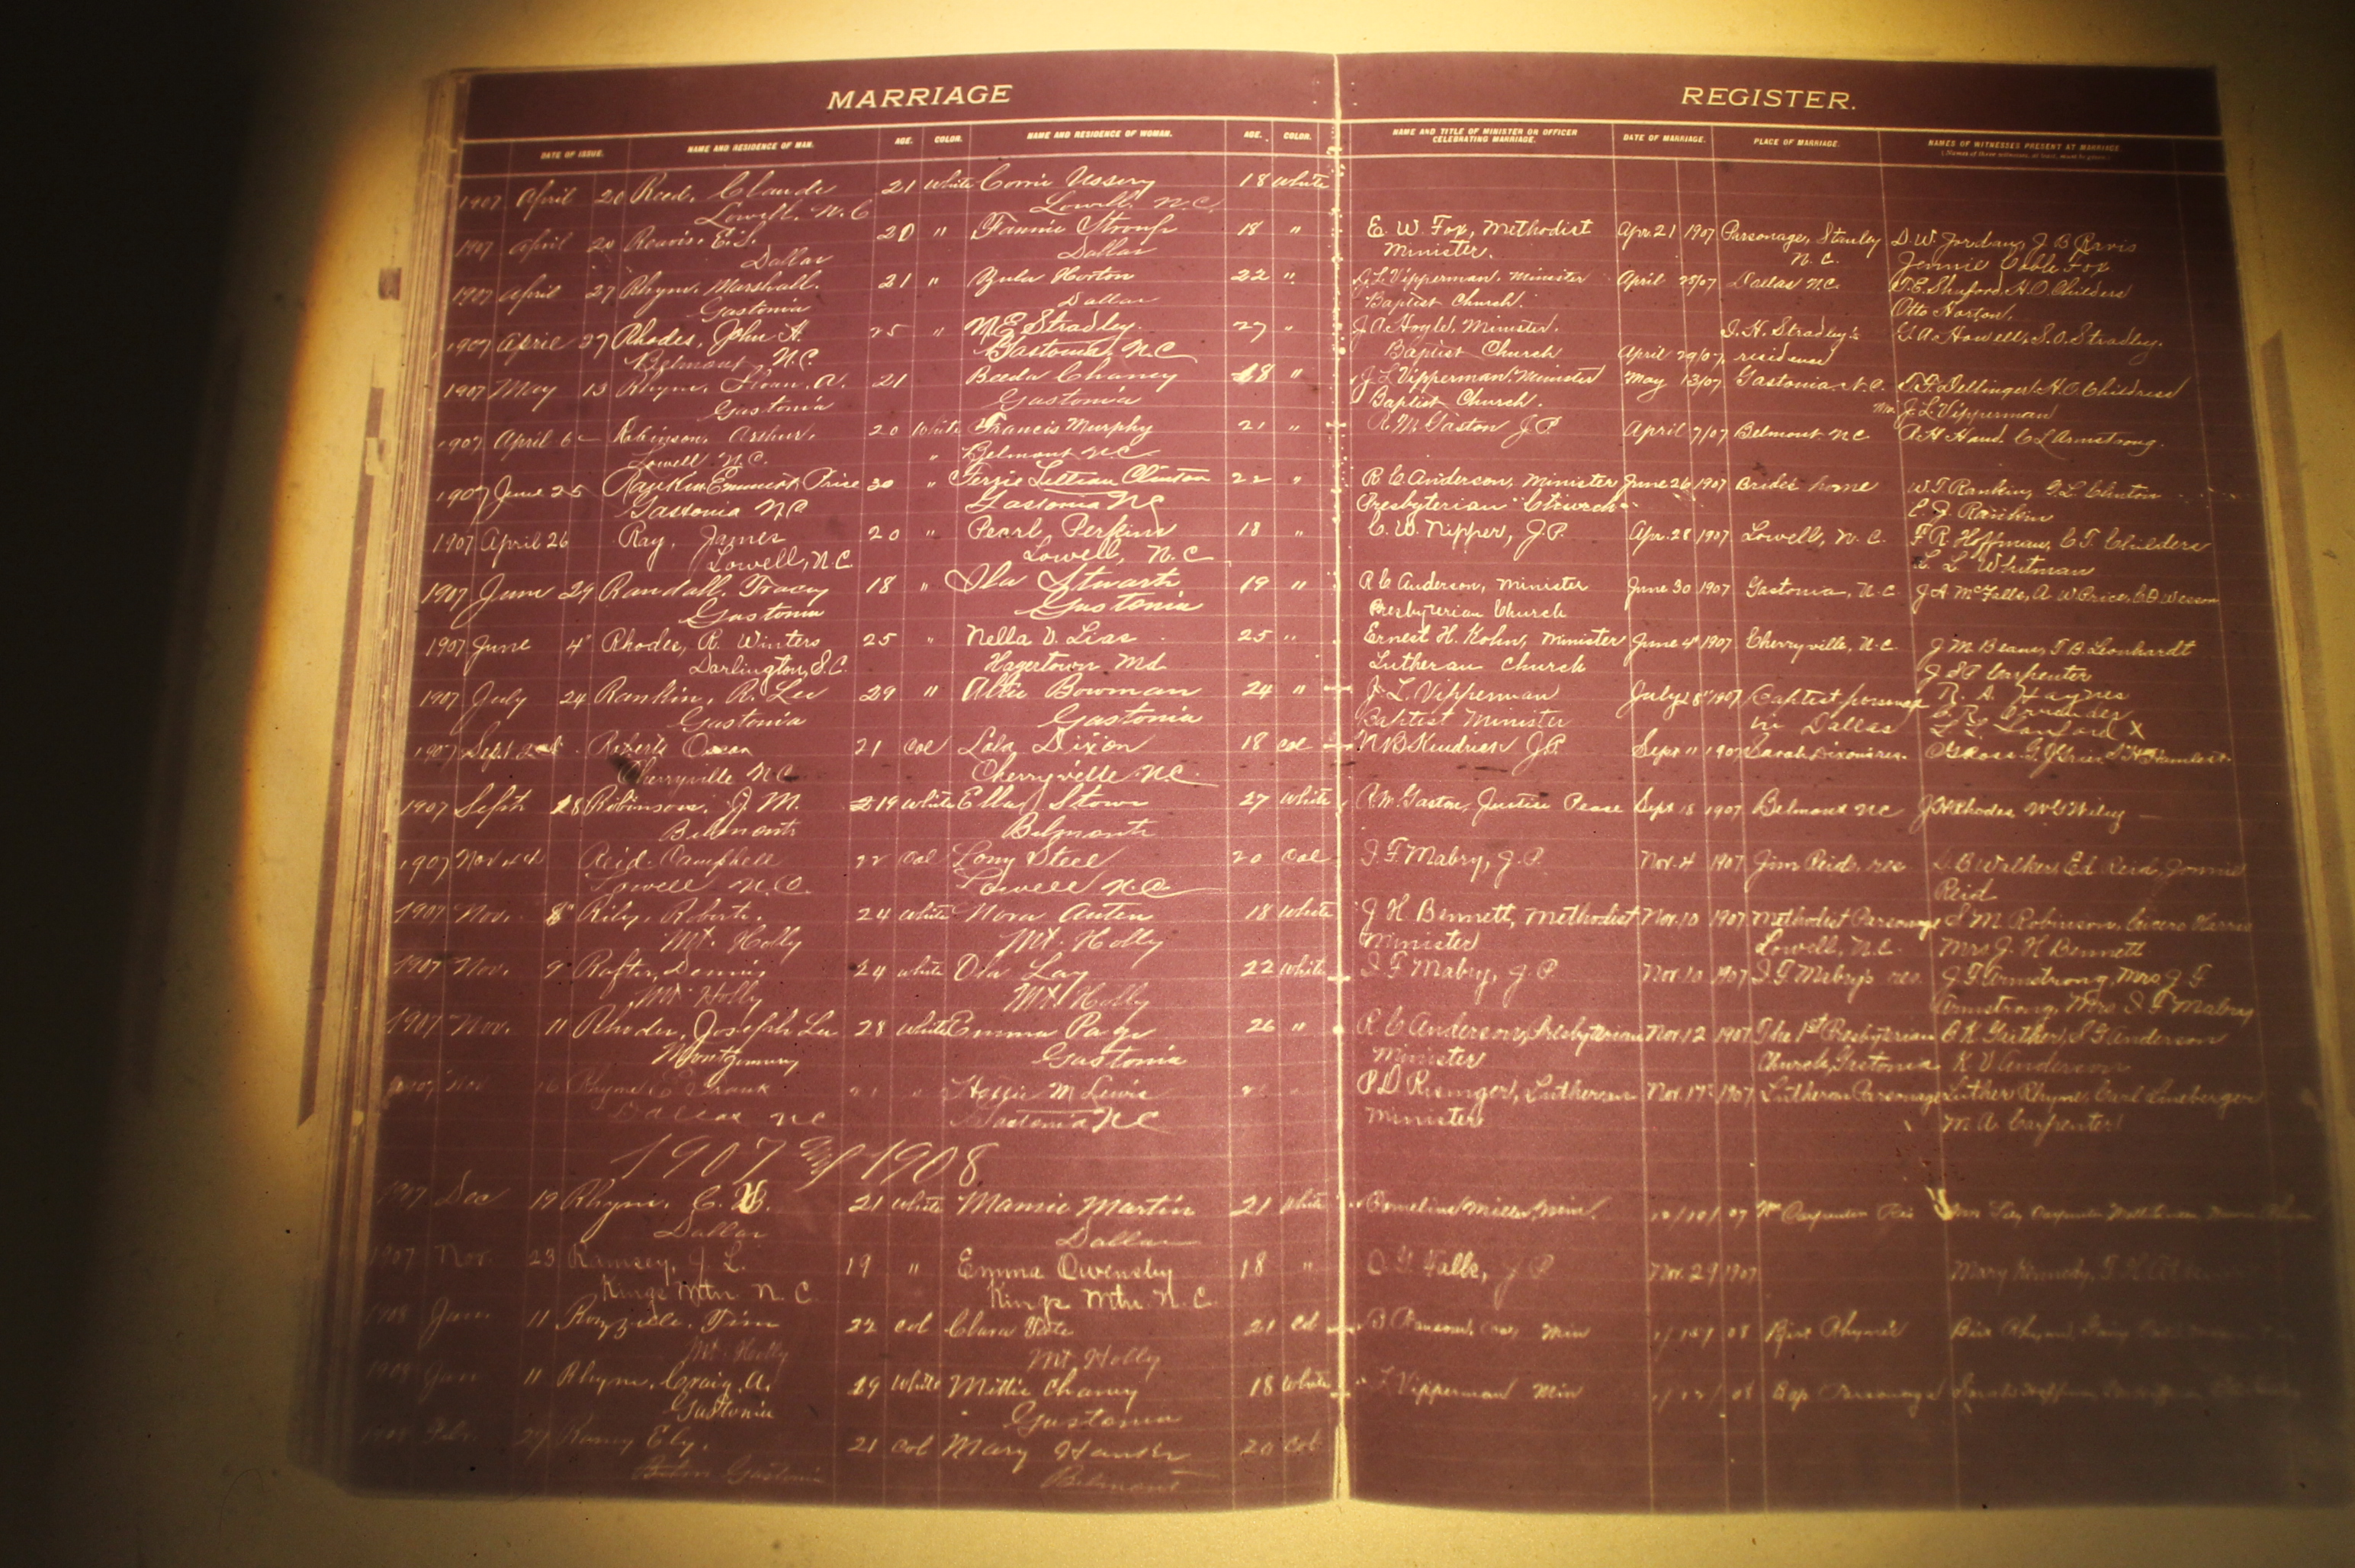 MARRIAGE
REGISTER.
DATE OF ISSUE. NAME AND RESIDENCE OF MAN. AGE. COLOR. NAME AND RESIDENCE OF WOMAN. AGE. COLOR.
NAME AND TITLE OF MINISTER OR OFFICER CELEBRATING MARRIAGE. DATE OF MARRIAGE. PLACE OF MARRIAGE. NAMES OF WITNESSES PRESENT AT MARRIAGE
1907 April 20 Reed, Claude 21 White Corrie Ussery 18 White
Lowell, N.C Lowell, N.C.
1907 April 20 Reavis, E.S. 20 " Fannie Stroup 18 " E. W. Fox, Methodist Apr. 21 1907 Parsonage, Stanley D. W. Jordan, J B Ravis
Dallas Dallas Minister. N.C. Jennie Cable Fox
1907 April 27 Rhyne, Marshall. 21 " Zula Horton 22 " J L Vipperman, Minister April 28/07 Dallas N.C. T. E. Shuford, H. O. Childers
Gastonia Dallas Baptist Church. Otto Horton,
1907 April 27 Rhodes, John H. 25 " M E Stradley. 27 " J A Hoyle, Minister. J. H. Stradley's G. A. Howell, S. O. Stradley.
Belmont N.C. Gastonia, N.C Baptist Church April 29/07 residence
1907 May 13 Rhyne, Sloan, A. 21 Beeda Chaney 18 " J L Vipperman, Minister May 13/07 Gastonia, N.C. Dellinger H. O. Childress
Gastonia Gastonia Baptist Church. Mrs J L Vipperman
1907 April 6 Robinson, Arthur. 20 White Francis Murphy 21 " R. M. Gaston J P. April 7/07 Belmont NC A H Hand. C L Armstrong.
Lowell N.C. " Belmont N.C.
1907 June 25 Rankin Emmett Price 30 " Lillian Clinton 22 " R C Anderson, Minister June 26 1907 Brides home W. T. Rankin, G. L. Clinton
Gastonia NC Gastonia NC Presbyterian Church E. J. Rankin
1907 April 26 Ray, James 20 " Pearl Perkins 18 " C. W. Nipper, J.P. Apr. 28 1907 Lowell, N.C. F R Hoffman, C. T. Childers
Lowell, N.C Lowell, N.C L. L Whitman
1907 June 29 Randall, Tracy 18 " Ila Stuart 19 " R C Anderson, Minister June 30 1907 Gastonia, N.C J A McFalls, A W Price, C D Wesson
Gastonia Gastonia Presbyterian Church
1907 June 4 Rhodes, R. Winters 25 " Nella V. Lias 25 " Ernest H. Kohn, Minister June 4 1907 Cherryville, N.C. J M Beam, T. B. Leonhardt
Darlington, S.C. Hagertown Md Lutheran Church Carpenter
1907 July 24 Rankin, R. Lee 29 " Altie Bowman 24 " J. L. Vipperman July 28 1907 Baptist R. A. Haynes
Gastonia Gastonia Baptist Minister in Dallas
1907 Sept. Roberts Oscar 21 col Lola Dixon 18 col N B Kendrick J.P. Sept 11 1907 Sarah Dixons res.
Cherryville N.C Cherryville N.C.
1907 Sept 18 Robinson, J. M. 19 White Ella Stowe 27 White R. M. Gaston, Justice Peace Sept 18 1907 Belmont NC J H Rhodes W G Wiley
Belmont Belmont
1907 Nov 4 Reid. Campbell 22 Col Lony Steel 20 Col J. F Mabry, J.P. Nov. 4 1907 Jim Reids, res L. B Walker, Ed Reid, Jonnie
Lowell N.C. Lowell N.C. Reid
1907 Nov. 8 Rily, Robert. 24 White Nora Auten 18 White J H Bennett, Methodist Nov. 10 1907 Methodist Parsonage S. M. Robinson, Cicero Harris
Mt. Holly Mt. Holly Minister Lowell, N.C. Mrs J. H Bennett
1907 Nov. 9 Rafter, Dennis 24 White Ola Lay 22 White J F Mabry, J.P. Nov 10 1907 J. F. Mabry's res. J. F Armstrong, Mrs J F
Mt Holly Mt Holly Armstrong, Mrs J F Mabry
1907 Nov. 11 Rhodes, Joseph Lee 28 White Emma Page 26 " R C Anderson, Presbyterian Nov. 12 1907 The 1st Presbyterian B K Guither, S G Anderson
Montgomery Gastonia Minister Church, Gastonia K V Anderson
1907 Nov 16 Rhyne C Frank 21 " Hossie M Lewis P D Risinger, Lutheran Nov. 17 1907 Lutheran Parsonage Luther Rhyne, Carl Lineberger
Dallas NC Gastonia NC Minister M. A. Carpenter
1907 and 1908
1907 Dec 19 Rhyne, C. B. 21 White Mamie Martin 21 White Cornelius Miller, Min. 07 Carpenter Res
Dallas Dallas
1907 Nov. 23 Ramsey, J. L. 19 " Emma Owensby 18 " O. G Falls, J P Nov. 29 1907 Mary Kennedy,
Kings Mtn. N.C Kings Mtn. N.C.
1908 Jan. 11 Rozzelle, Tim 22 col Clara 21 Col Min 08
Mt Holly Mt, Holly
1908 Jan 11 Rhyne, Craig, A. 19 White Mittie Chaney 18 White Vipperman Min 08 Bap Parsonage
Gastonia Gastonia
1908 Feb. 29 Ely, 21 Col Mary 20 Col.
Gastonia Belmont